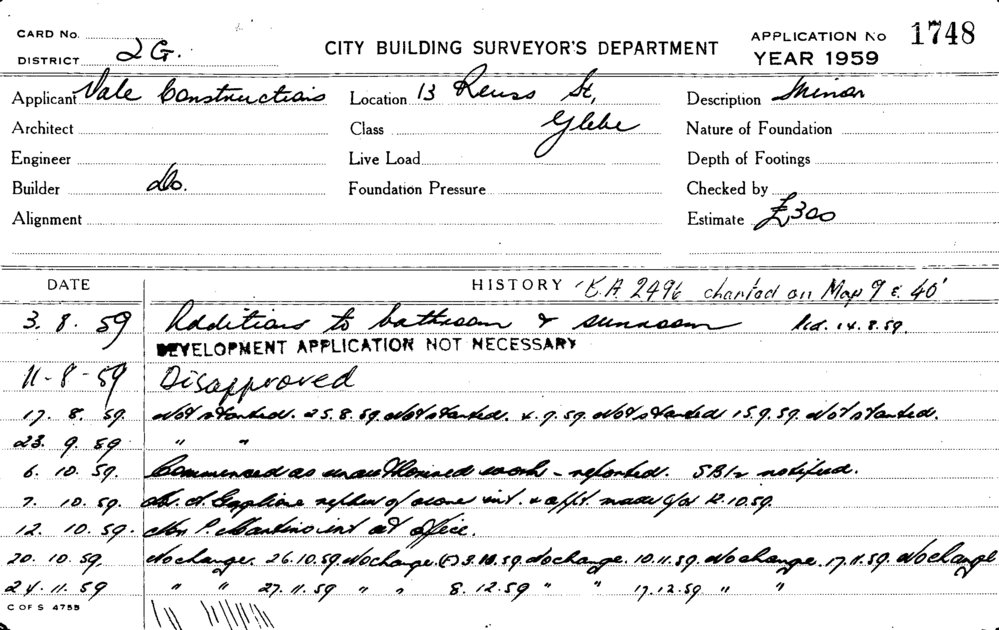 CARD No.
DISTRICT 2 G.
CITY BUILDING SURVEYOR'S DEPARTMENT
APPLICATION No 1748
YEAR 1959
Applicant Vale Constructions Location 13 Reuss St, Description Minor
Architect Class Glebe Nature of Foundation
Engineer Live Load Depth of Footings
Builder do. Foundation Pressure Checked by
Alignment Estimate £300
DATE HISTORY B.A. 2496 charted on Map 9 & 40'
3. 8. 59 Additions to bathroom & sunroom 14.8.59.
DEVELOPMENT APPLICATION NOT NECESSARY
11-8-59 Disapproved
17. 8. 59. Not started. 25.8.59. Not started. 4.9.59. Not started 15.9.59. Not started.
23. 9. 59 " "
6. 10. 59. Commenced as unauthorised work - reported. notified.
7. 10. 59. nephew of owner int. & appt. made for 12.10.59.
12. 10. 59. P. Martino int at office.
20. 10. 59. No change. 26.10.59. No change. 3.10.59. No change. 10.11.59. No change. 17.11.59. No change
24. 11. 59 " " 27.11.59 " " 8.12.59 " " 17.12.59 " "
C OF S 4755